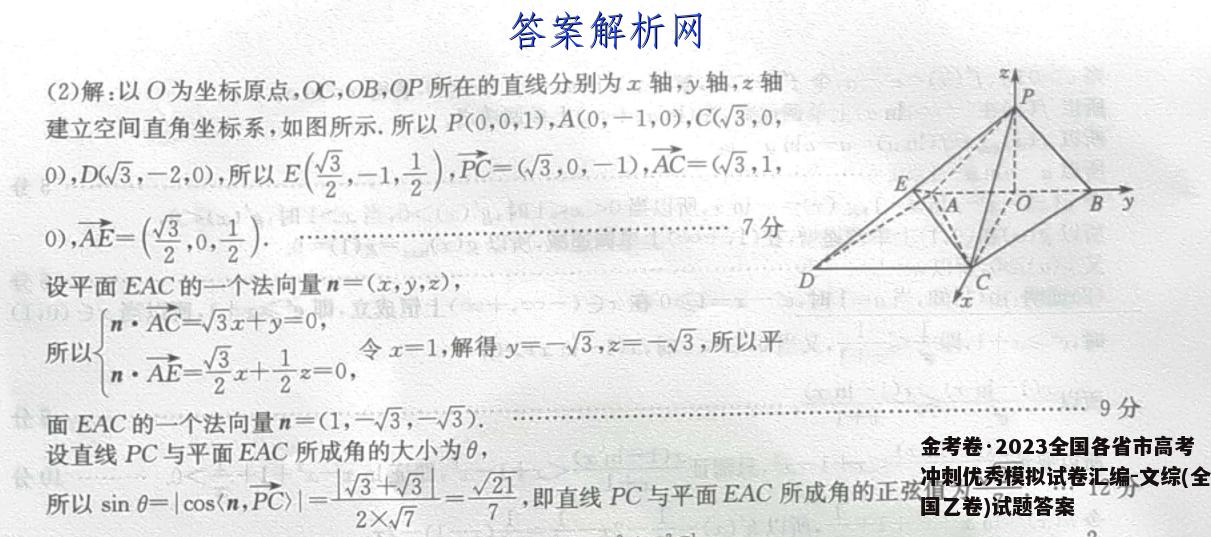 答案解析网
(2)解:以O为坐标原点,OC,OB,OP所在的直线分别为x轴,y轴,z轴
建立空间直角坐标系,如图所示.所以P(0,0,1),A(0,-1,0),C(√3,0,
0),D(√3,-2,0),所以E(√3/2,-1,1/2),PC→=(√3,0,-1),AC→=(√3,1,
0),AE→=(√3/2,0,1/2). ………… 7分
设平面EAC的一个法向量n=(x,y,z),
所以{n·AC→=√3x+y=0,
n·AE→=√3/2x+1/2z=0,
令x=1,解得y=-√3,z=-√3,所以平
面EAC的一个法向量n=(1,-√3,-√3). ………… 9分
设直线PC与平面EAC所成角的大小为θ,
所以sin θ=|cos⟨n,PC→⟩|=|√3+√3|/2×√7=√21/7,即直线PC与平面EAC所成角的正弦值为 12分
z
P
E
A
O
B
y
D
C
x
金考卷·2023全国各省市高考
冲刺优秀模拟试卷汇编-文综(全
国乙卷)试题答案